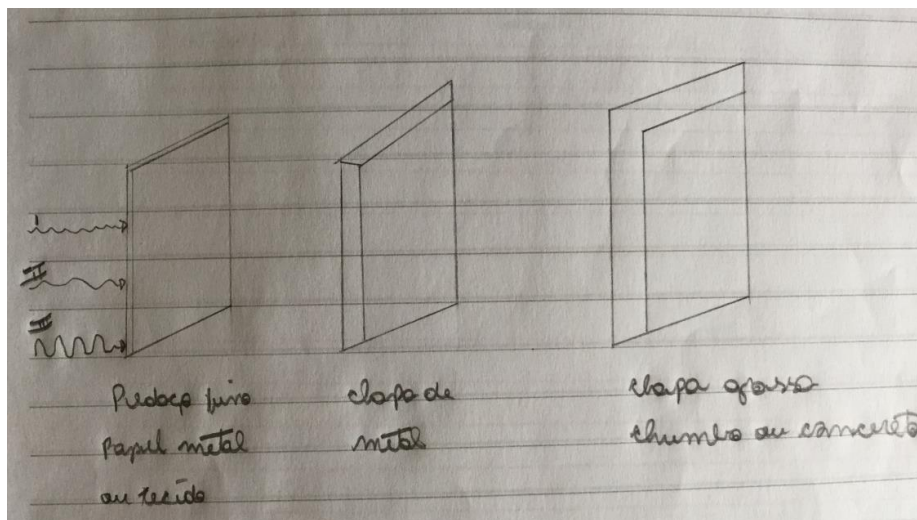 I
II
III
Pedaço fino
papel metal
ou tecido
chapa de
metal
chapa grossa
chumbo ou concreto